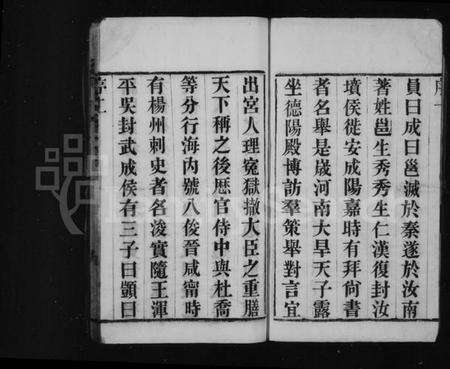 員曰成曰邕滅於秦遂於汝南
著姓邕生秀秀生仁漢復封汝
墳侯徙安成陽嘉時有拜尙書
者名舉是嵗河南大旱天子露
坐德陽殿博訪羣策舉對言宜
出宮人理寃獄撤大臣之重膳
天下稱之後歷官侍中與杜喬
等分行海內號八俊晉咸甯時
有楊州刺史者名浚實隨王渾
平吳封武成侯有三子曰顗曰